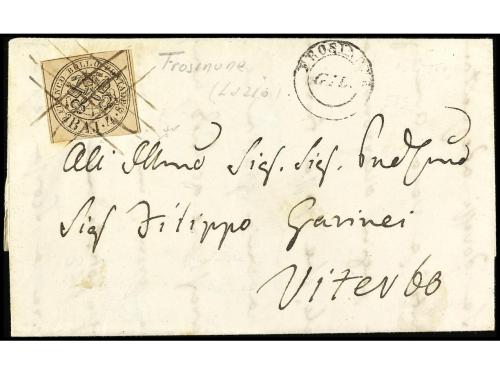 FRANCO BOLLO POSTALE
BAI. 4
Frosinone
(Lazio)
FROSINONE
GIL.
All Illmo Sig. Sig.
Sig Filippo Garinei
Viterbo